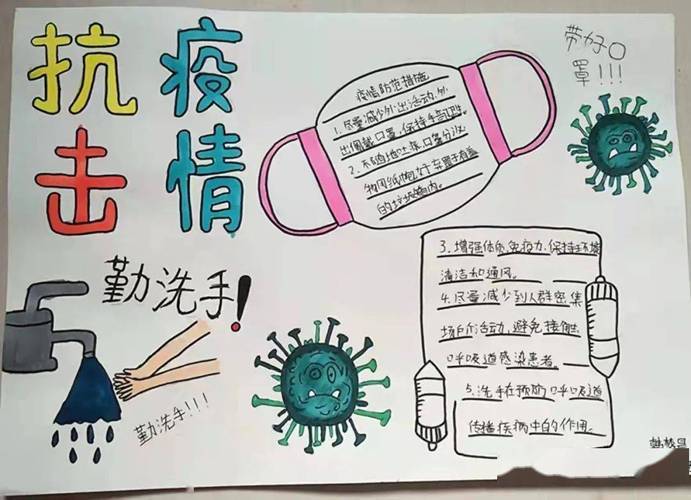 抗疫
击情
带好口
罩!!!
疫情防范措施
1.尽量减少外出活动,外
出佩戴口罩,保持手部卫生
2.不随地吐痰,口鼻分泌
物用纸巾包好弃置于有盖
的垃圾箱内。
勤洗手!
勤洗手!!!
3.增强体质免疫力,保持环境
清洁和通风。
4.尽量减少到人群密集
场所活动,避免接触
呼吸道感染患者。
5.洗手在预防呼吸道
传播疾病中的作用。